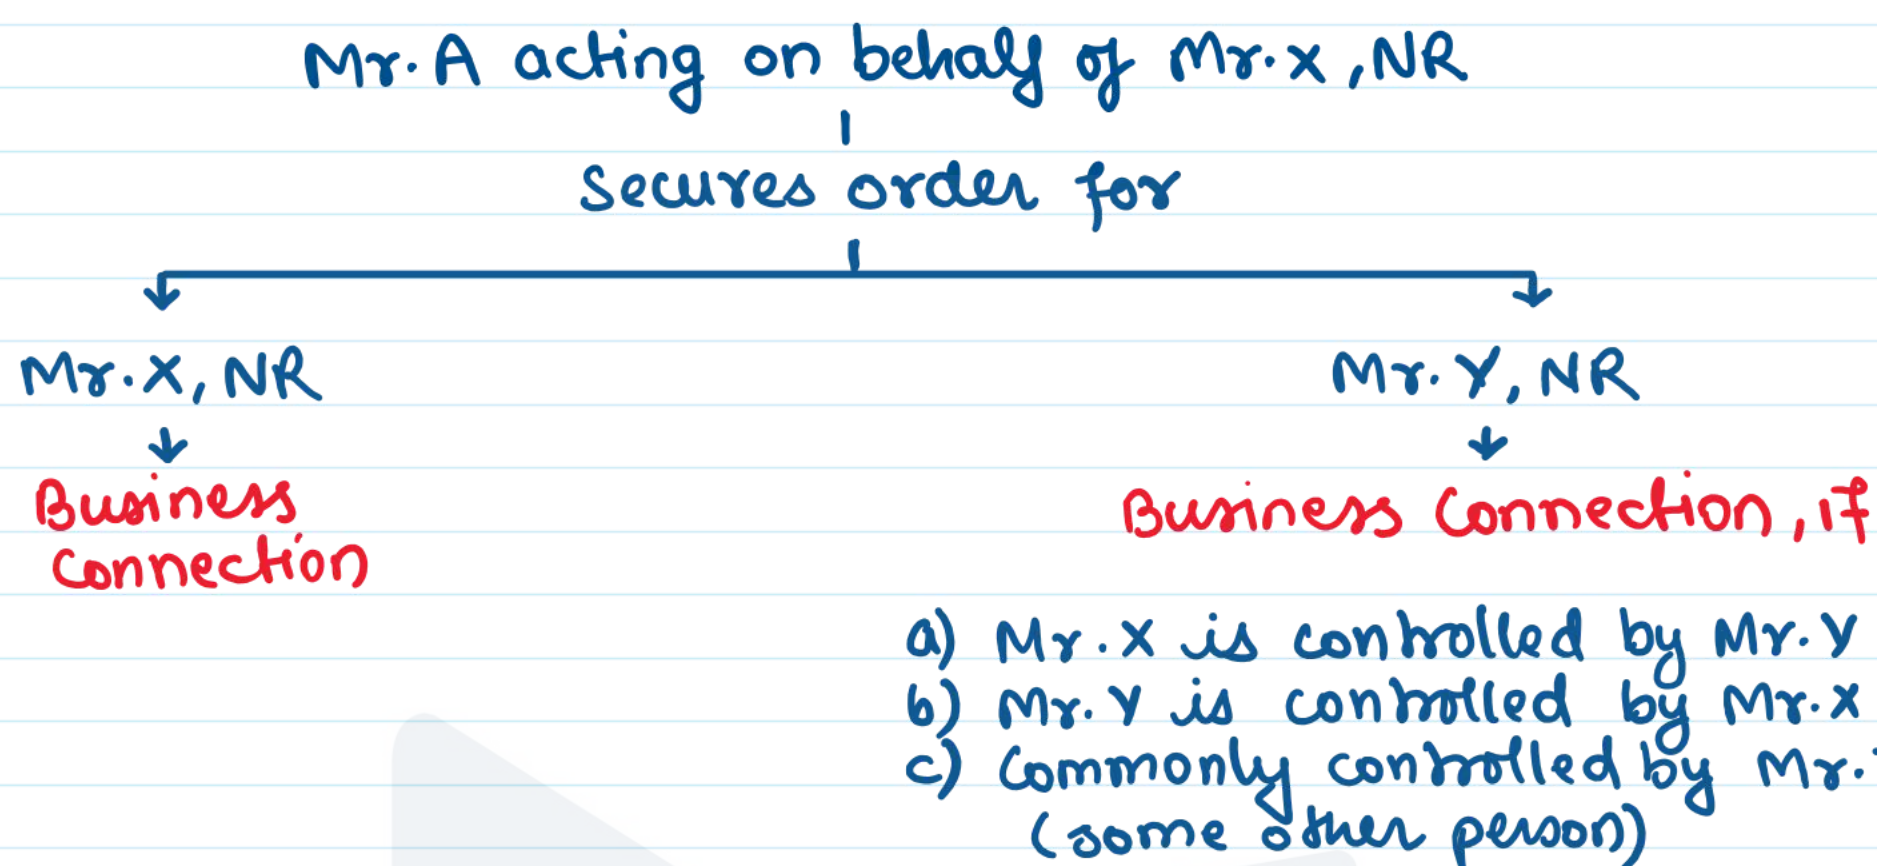 Mr. A acting on behalf of Mr. X, NR
Secures order for
Mr. X, NR
Mr. Y, NR
Business
Connection
Business Connection, if
a) Mr. X is controlled by Mr. Y
b) Mr. Y is controlled by Mr. X
c) Commonly controlled by Mr.
(some other person)